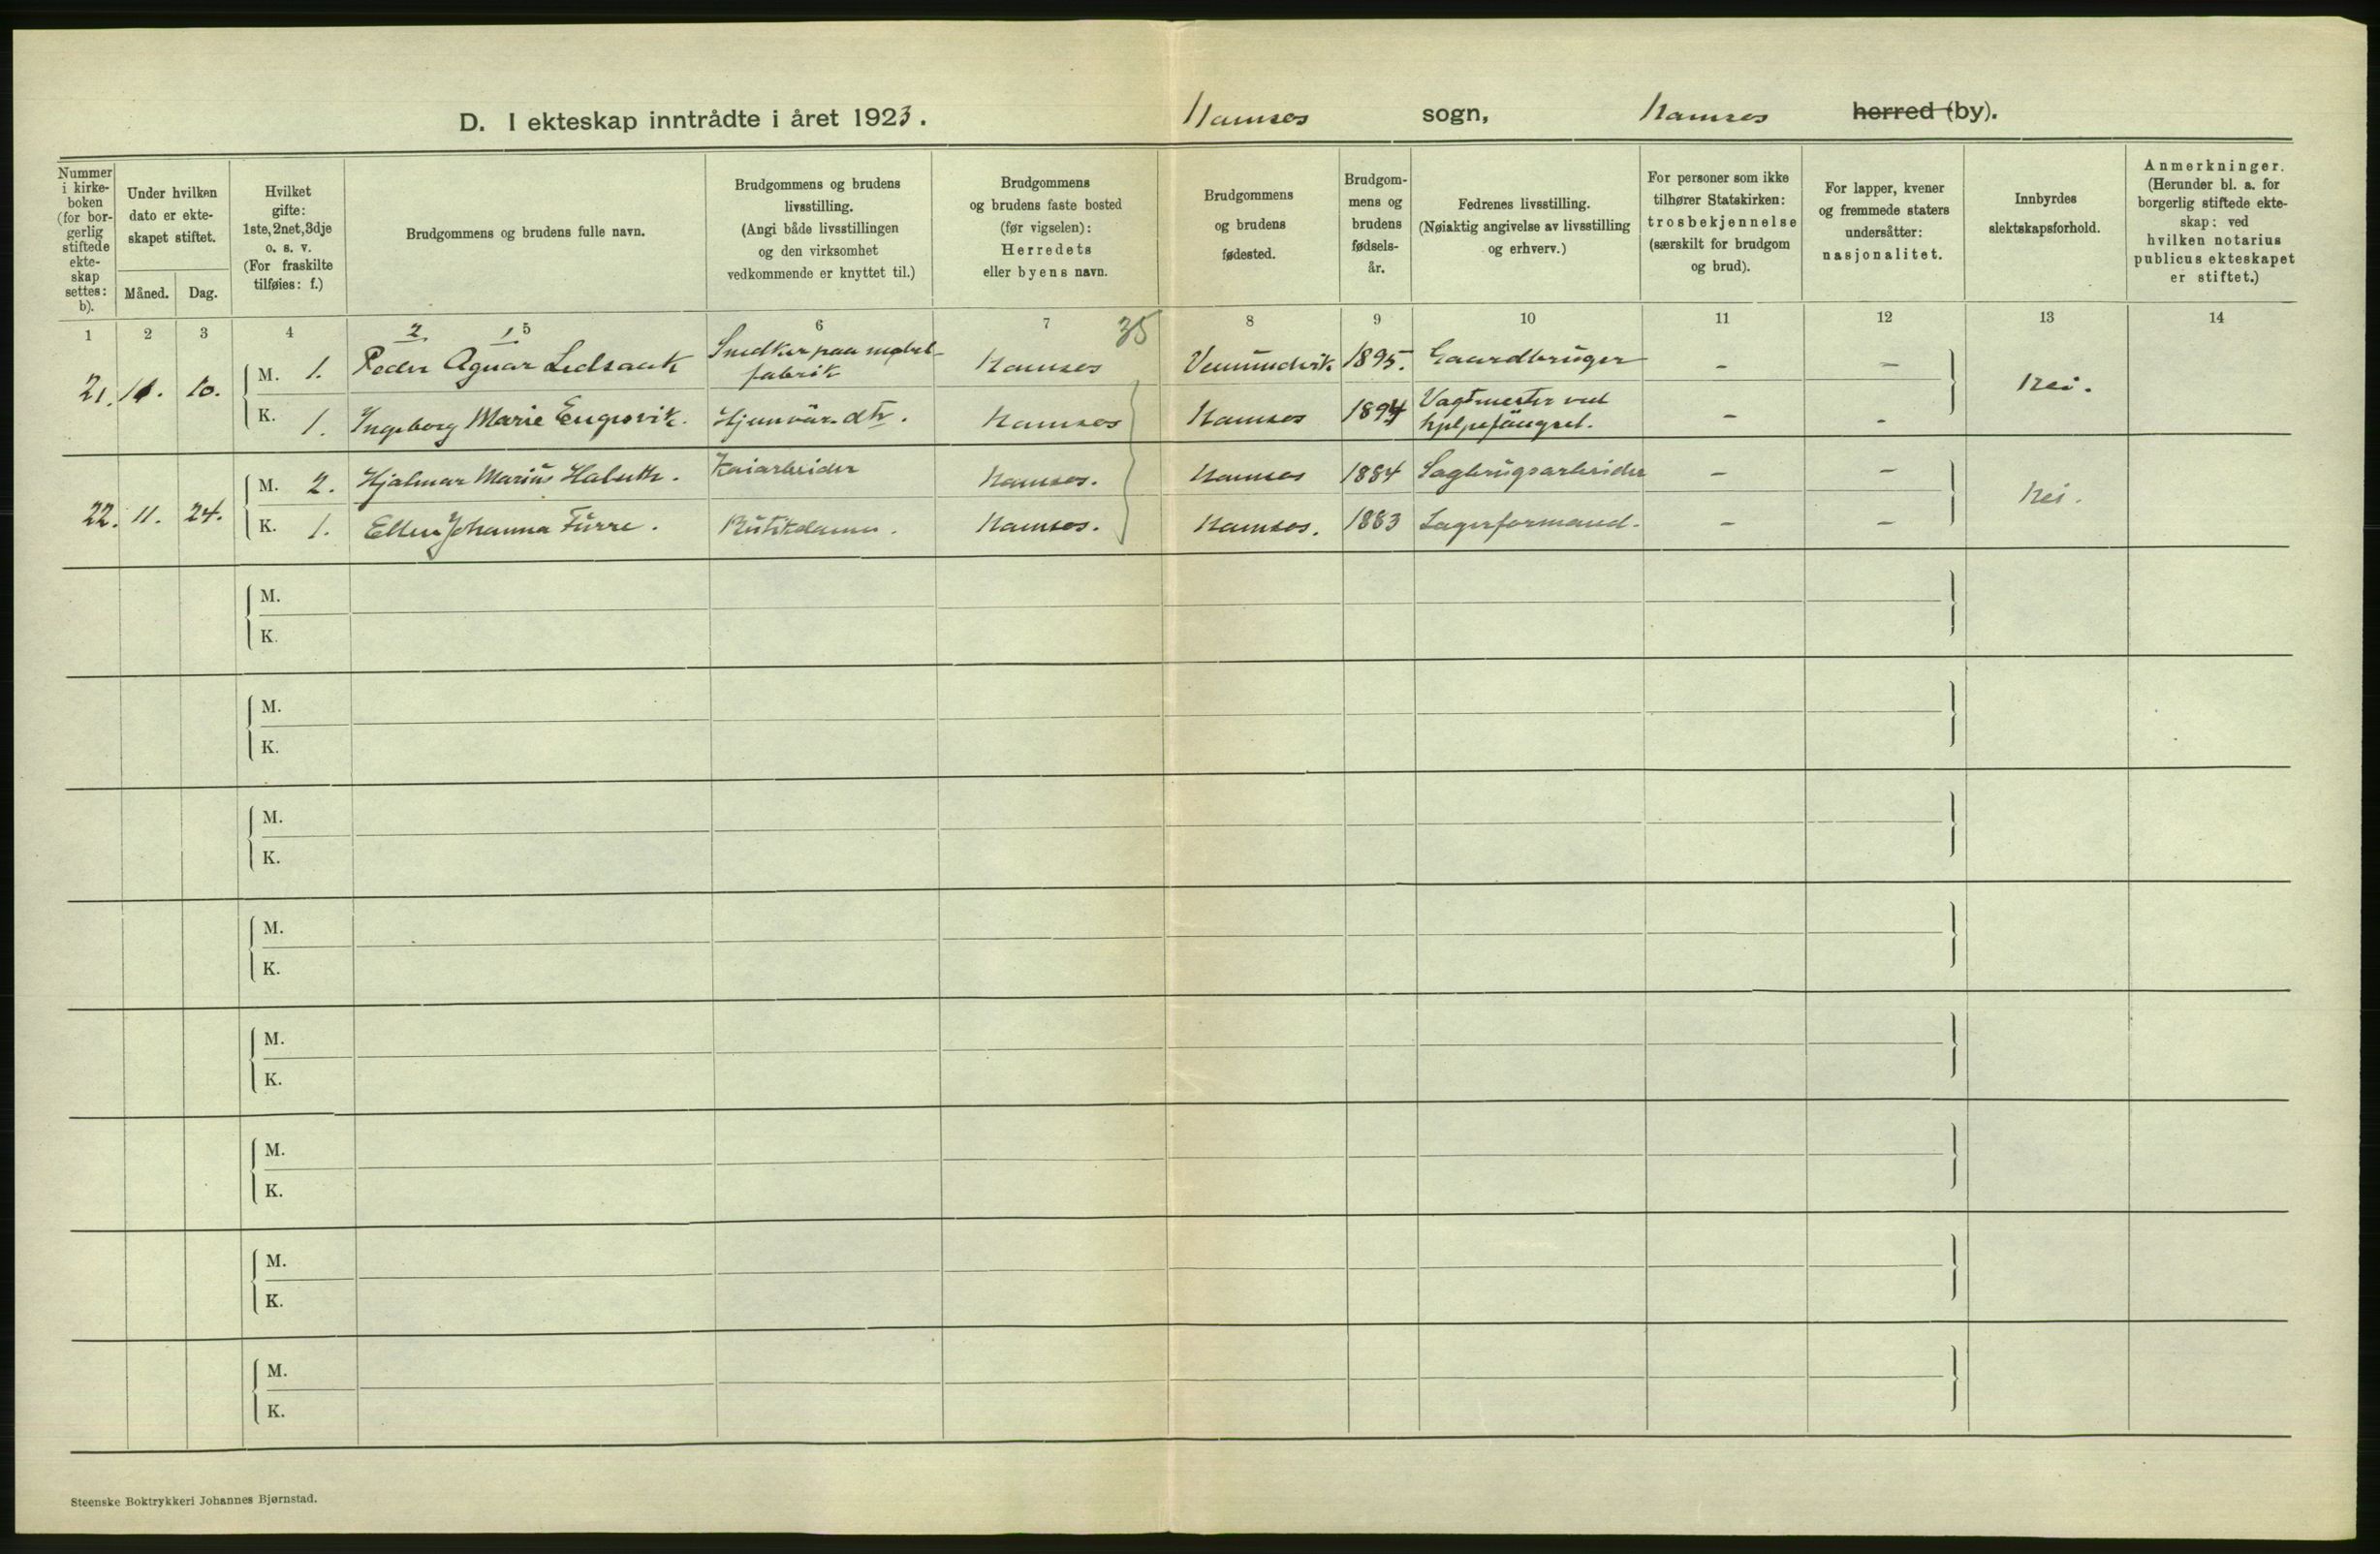 D. I ekteskap inntrådte i året 1923. Namsos sogn, Namsos herred (by).
Nummer i kirkeboken (for borgerlig stiftede ekteskap settes: b).
Under hvilken dato er ekteskapet stiftet.
Måned. Dag.
Hvilket gifte: 1ste, 2net, 3dje o. s. v. (For fraskilte tilføies: f.)
Brudgommens og brudens fulle navn.
Brudgommens og brudens livsstilling. (Angi både livsstillingen og den virksomhet vedkommende er knyttet til.)
Brudgommens og brudens faste bosted (før vigselen): Herredets eller byens navn.
Brudgommens og brudens fødested.
Brudgommens og brudens fødselsår.
Fedrenes livsstilling. (Nøiaktig angivelse av livsstilling og erhverv.)
For personer som ikke tilhører Statskirken: trosbekjennelse (særskilt for brudgom og brud).
For lapper, kvener og fremmede staters undersåtter: nasjonalitet.
Innbyrdes slektskapsforhold.
Anmerkninger. (Herunder bl. a. for borgerlig stiftede ekteskap: ved hvilken notarius publicus ekteskapet er stiftet.)
1 2 3 4 5 6 7 8 9 10 11 12 13 14
2 1 35
21. 11. 10. M. 1. Peder Agnar Ledsaak Snedker paa møbelfabrik Namsos Vemundvik 1895. Gaardbruger - - Nei.
K. 1. Ingeborg Marie Engesvik. Hjemvær. dtr. Namsos Namsos 1894 Vagtmester ved hjelpefängsel. - -
22. 11. 24. M. 2. Hjalmar Marius Kaiarbeider Namsos. Namsos 1884 Sagbrugsarbeider - - Nei.
K. 1. Ellen Johanna Furre. Butikdame. Namsos. Namsos. 1883 Lagerformand. - -
M.
K.
M.
K.
M.
K.
M.
K.
M.
K.
M.
K.
M.
K.
M.
K.
Steenske Boktrykkeri Johannes Bjørnstad.